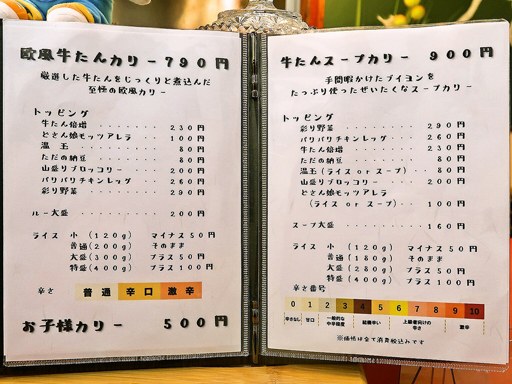 欧風牛たんカリー 790円
厳選した牛たんをじっくりと煮込んだ
至極の欧風カリー
トッピング
牛たん倍増 ・・・・・・・ 230円
とさん娘モッツアレラ ・・・ 100円
温 玉 ・・・・・・・・・ 80円
ただの納豆 ・・・・・・・ 80円
山盛りブロッコリー ・・・・ 200円
パリパリチキンレッグ ・・・ 260円
彩り野菜 ・・・・・・・・ 290円
ルー大盛 ・・・・・・・・ 200円
ライス 小 (120g) マイナス50円
普通(200g) そのまま
大盛(300g) プラス50円
特盛(400g) プラス100円
辛さ 普通 辛口 激辛
お子様カリー 500円
牛たんスープカリー 900円
手間暇かけたブイヨンを
たっぷり使ったぜいたくなスープカリー
トッピング
彩り野菜 ・・・・・・・・ 290円
パリパリチキンレッグ ・・・ 260円
牛たん倍増 ・・・・・・・ 230円
ただの納豆 ・・・・・・・ 80円
温玉(ライス or スープ) ・・ 80円
山盛りブロッコリー ・・・・ 200円
とさん娘モッツアレラ
(ライス or スープ) ・・・ 100円
スープ大盛 ・・・・・・・ 160円
ライス 小 (120g) マイナス50円
普通(180g) そのまま
大盛(280g) プラス50円
特盛(400g) プラス100円
辛さ番号
0 1 2 3 4 5 6 7 8 9 10
辛さなし 甘口 一般的な中辛程度 結構辛い 上級者向けの辛さ 激辛
※価格は全て消費税込みです